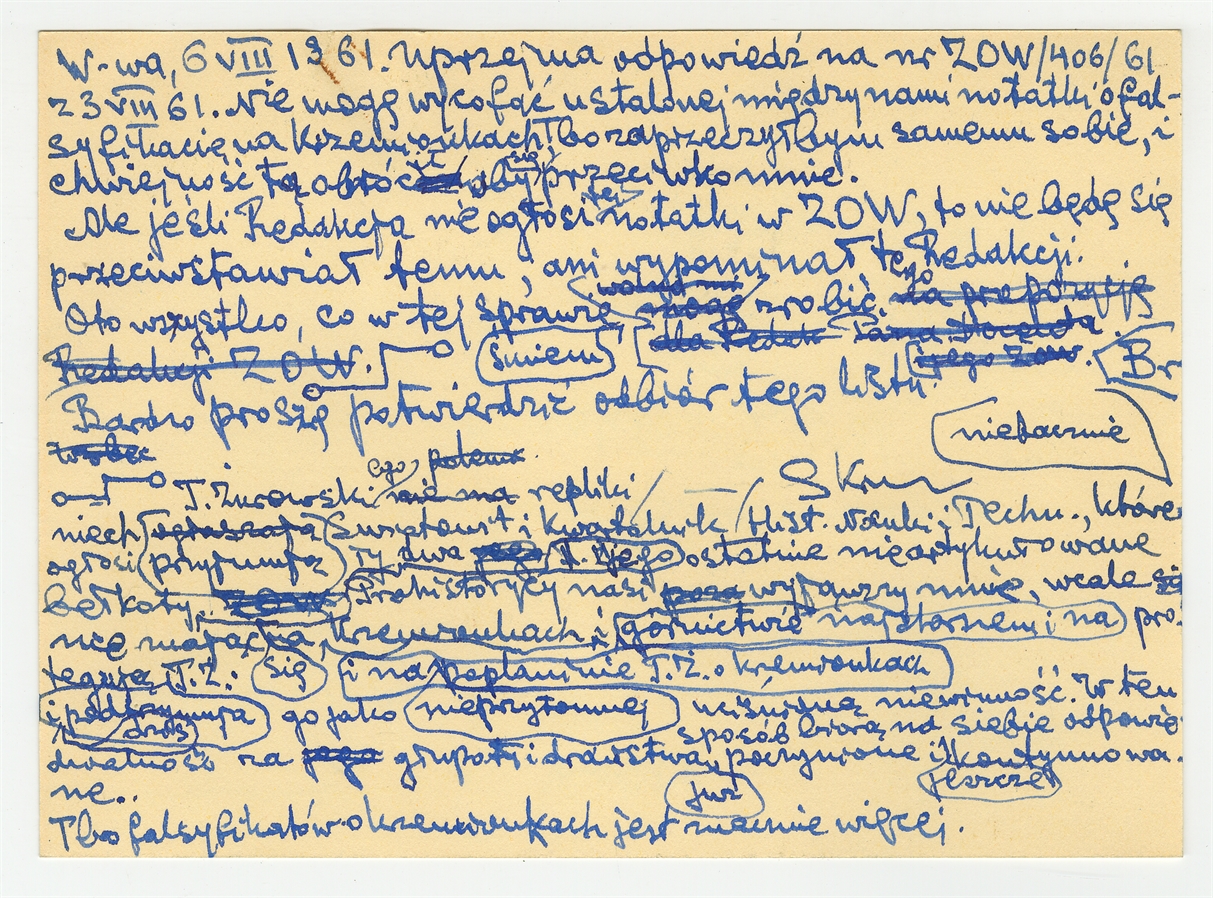 W-wa, 6 VIII 1961. Uprzejma odpowiedź na nr ZOW/406/61
z 3 VIII 61. Nie mogę wycofać ustalonej między nami notatki o fal-
syfikacie na krzemionkach, bo zaprzeczyłbym samemu sobie, i
chwiejność tą obróc się przeciwko mnie.
Ale jeśli Redakcja nie ogłosi tej notatki w ZOW, to nie będę się
przeciwstawiał temu, ani wypominał tego Redakcji.
wolno mi
Oto wszystko, co w tej sprawie mogę zrobić na propozycję
dla Redak
Redakcji ZOW. śmiem Br
Bardzo proszę potwierdzić odbiór tego listu.
niebacznie
potem
T. Żurowski ego nie ma repliki SKru
niech ogłaszają Kwartalnik Hist. Nauki i Techn., które
ogłosi Ty dwa ostatnie nieartykułowane
bełkoty. ZOW Prehistorycy nasi poza wyjąwszy mnie, wcale się
nie znający na krzemionkach i górnictwie najstarszem i na pro-
tegują T.Ż. się i na T.Ż. o krzemionkach
i podtrzymują go jako nieprzytomnej niewinność. W ten
sposób biorą na siebie odpowie-
dzialność za jego głupoty i draństwa, poczynione i kontynuowa-
jeszcze
ne.. już
Tbo falsyfikatów o krzemionkach jest znacznie więcej.